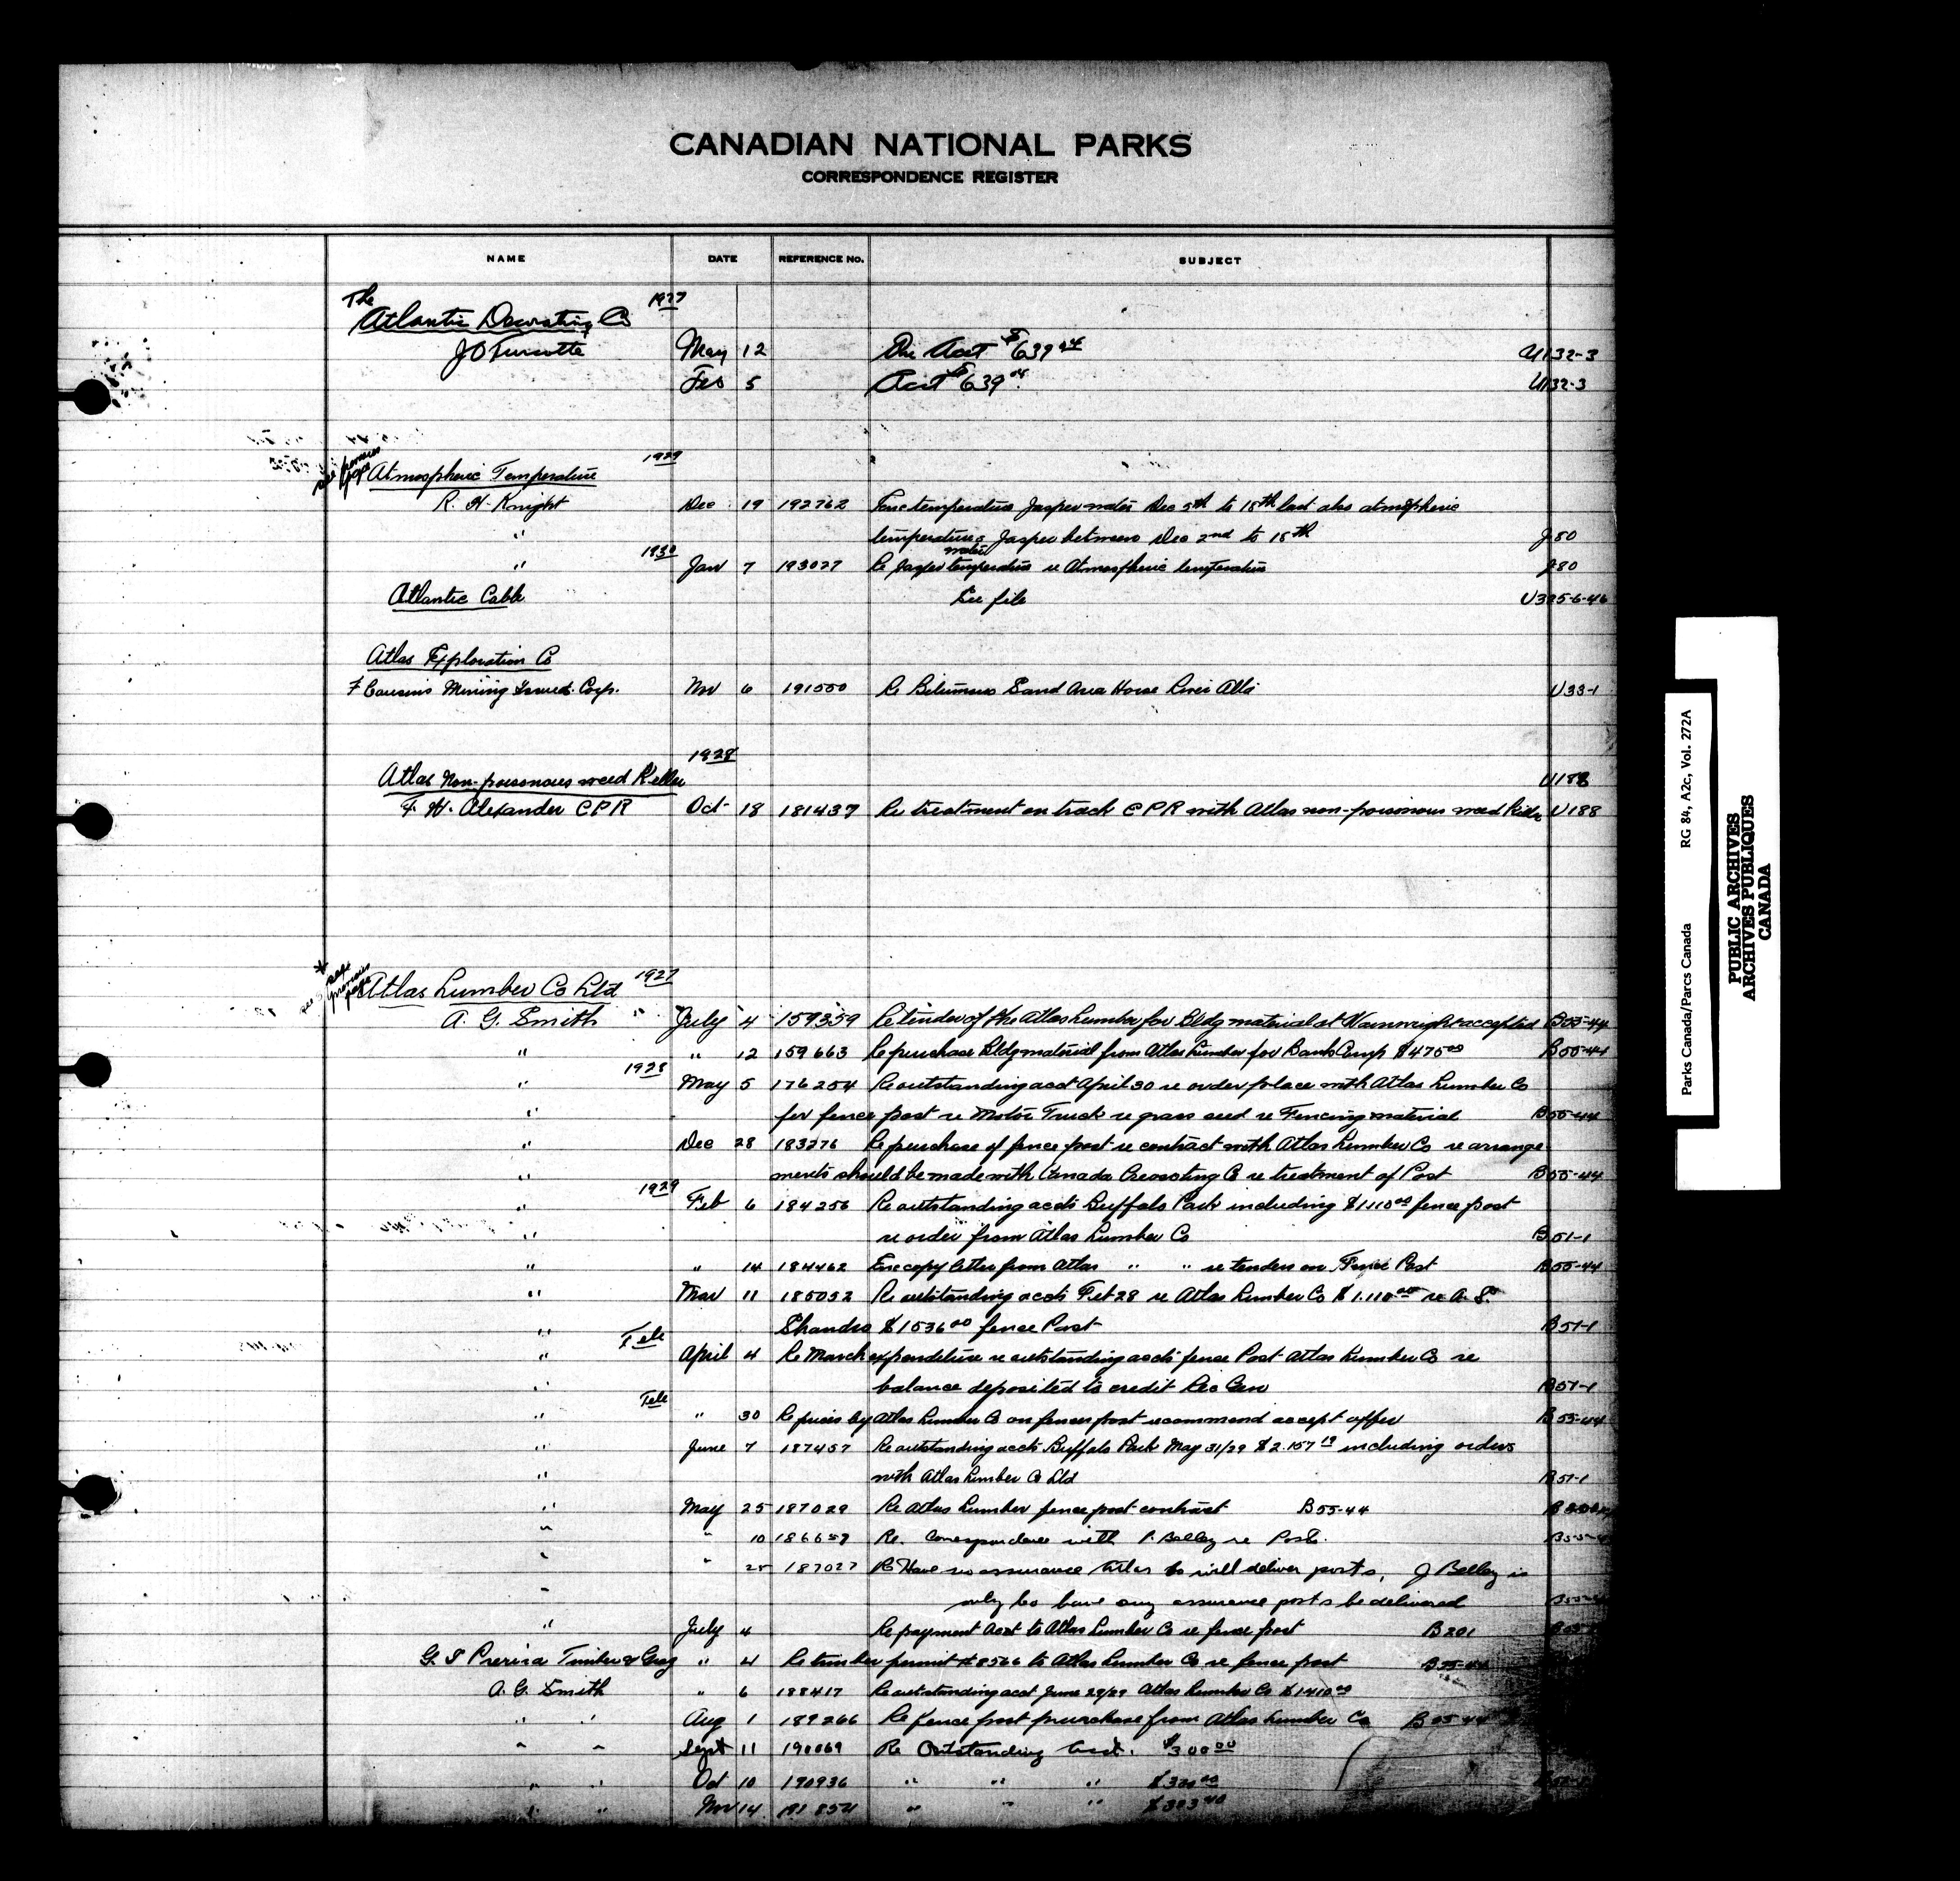 CANADIAN NATIONAL PARKS
CORRESPONDENCE REGISTER
NAME DATE REFERENCE No. SUBJECT
The 1927
Atlantic Co
J O Turcotte May 12 Acct $639 04 U132-3
Feb 5 Acct $639 04 U132-3
see previous page
1929
Atmospheric Temperature
R. H. Knight Dec 19 192762 temperature Jasper water Dec 5th to 18th last also atmospheric
" temperatures Jasper between Dec 2nd to 18th J80
1930
" Jan 7 193027 Re Jasper water temperature re Atmospheric temperature J80
Atlantic Cable See file U325-6-46
Atlas Exploration Co
Mining Corp. Nov 6 191550 Re Bitumous Sand Area Horse River Alta U33-1
1928
Atlas Non-poisonous weed Killer U188
F. W. Alexander CPR Oct 18 181437 Re treatment on track CPR with Atlas non-poisonous weed Killer U188
* see previous page
Atlas Lumber Co Ltd 1927
A. G. Smith July 4 159359 Re tender of the Atlas Lumber for Bldg material at Wainwright accepted B55-44
" " 12 159663 Re purchase Bldg material from Atlas Lumber for $475 00 B55-44
1928
" May 5 176254 Re outstanding acct April 30 re order place with Atlas Lumber Co
" for fence post re Motor Truck re grass seed re Fencing material B55-44
" Dec 28 183276 Re purchase of fence post re contract with Atlas Lumber Co re arrange-
" ments should be made with Canada Creosoting Co re treatment of Post B55-44
1929
" Feb 6 184256 Re outstanding accts Buffalo Park including $1110 00 fence post
" re order from Atlas Lumber Co B51-1
" " 14 184462 Enc copy letter from Atlas " " re tenders on Fence Post B55-44
" Mar 11 185052 Re outstanding accts Feb 28 re Atlas Lumber Co $1.110 00 re A. S.
" Shandro $1536 00 fence Post B51-1
Tele
" April 4 Re March expenditure re outstanding accts fence Post Atlas Lumber Co re
" balance deposited to credit Rec Gen B51-1
Tele
" " 30 Re prices by Atlas Lumber Co on fence post recommend accept offer B55-44
" June 7 187457 Re outstanding accts Buffalo Park May 31/29 $2.157 19 including orders
" with Atlas Lumber Co Ltd B51-1
" May 25 187029 Re Atlas Lumber fence post contract B55-44
" " 10 186657 Re. Correspondence with Belley re Post.
" " 25 187027 Re Have no assurance Atlas Co will deliver posts, J Belley is
" only Co have any assurance posts be delivered
" July 4 Re payment Acct to Atlas Lumber Co re fence post B201
G. Timber & Graz " 4 Re timber permit #8566 to Atlas Lumber Co re fence post B55-44
A. G. Smith " 6 188417 Re outstanding acct June 29/29 Atlas Lumber Co $1410 00
" " Aug 1 189266 Re fence post purchase from Atlas Lumber Co B55-44
" " Sept 11 190069 Re Outstanding Acct. $300 00
" " Oct 10 190936 " " "
" " Nov 14 191854 " " "
Parks Canada/Parcs Canada RG 84, A2c, Vol. 272A
PUBLIC ARCHIVES
ARCHIVES PUBLIQUES
CANADA